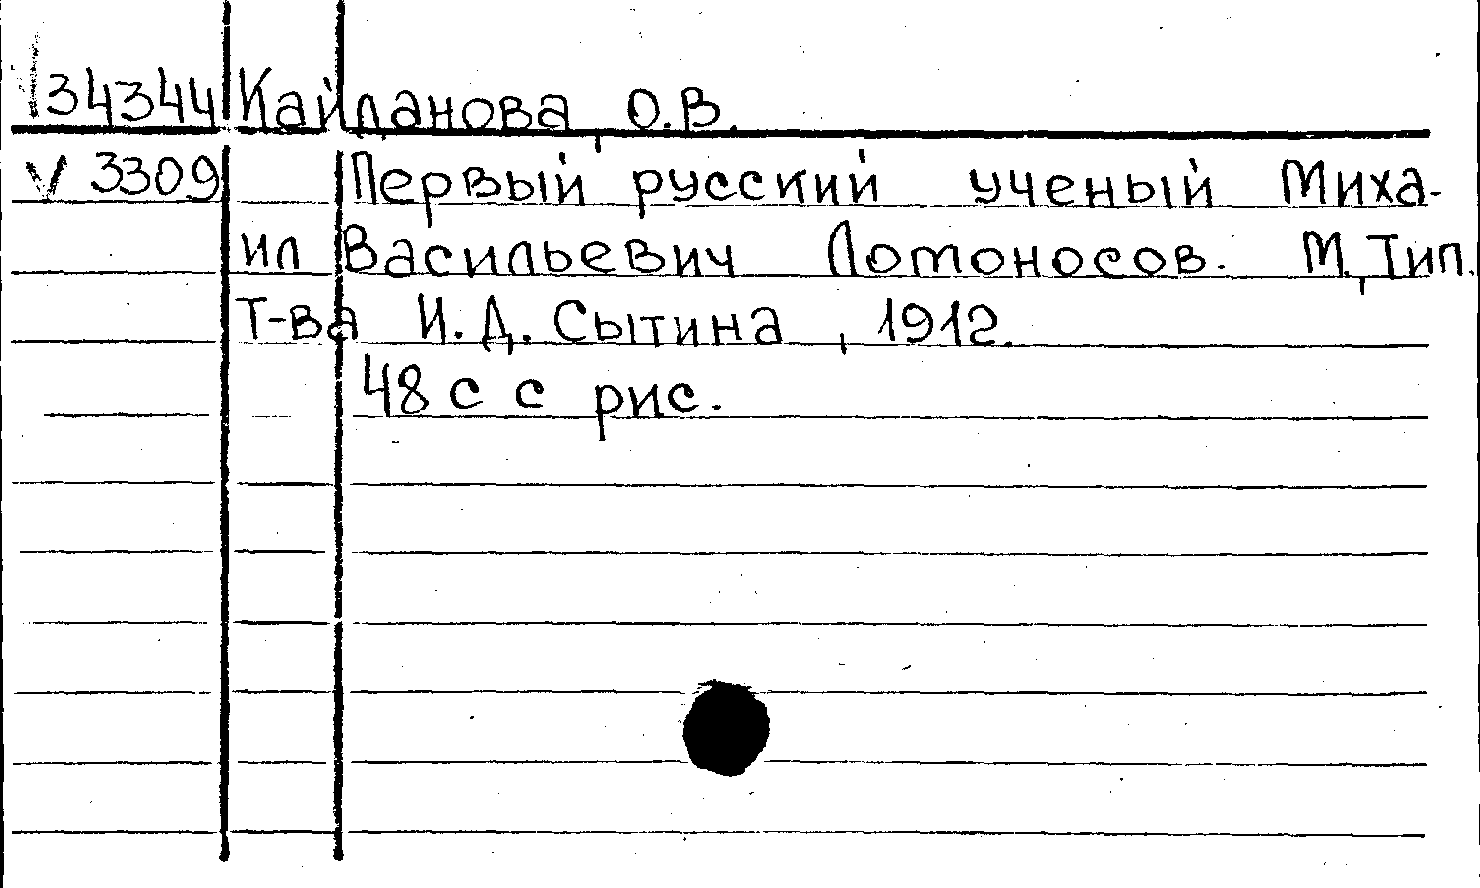 V34344 Кайданова, О.В.
V 3309 Первый русский ученый Миха-
ил Васильевич Ломоносов. М., Тип.
Т-ва И.Д. Сытина, 1912.
48 с с рис.